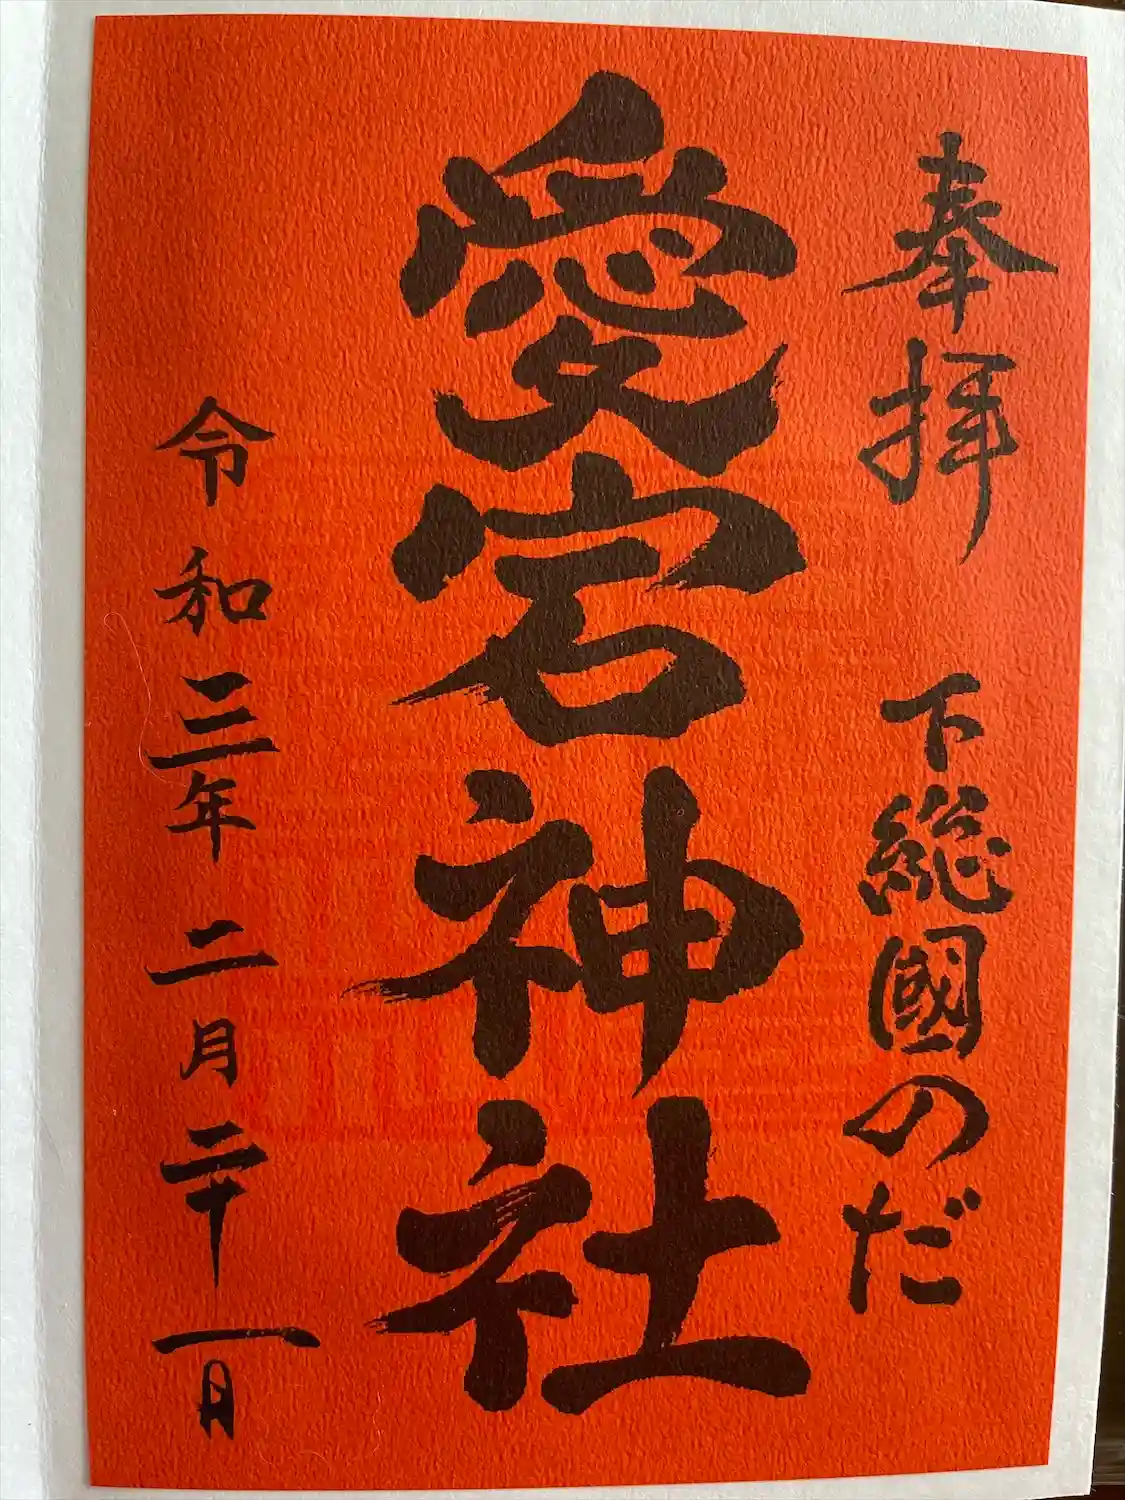 奉拝 下総國のだ
愛宕神社
令和三年二月二十一日